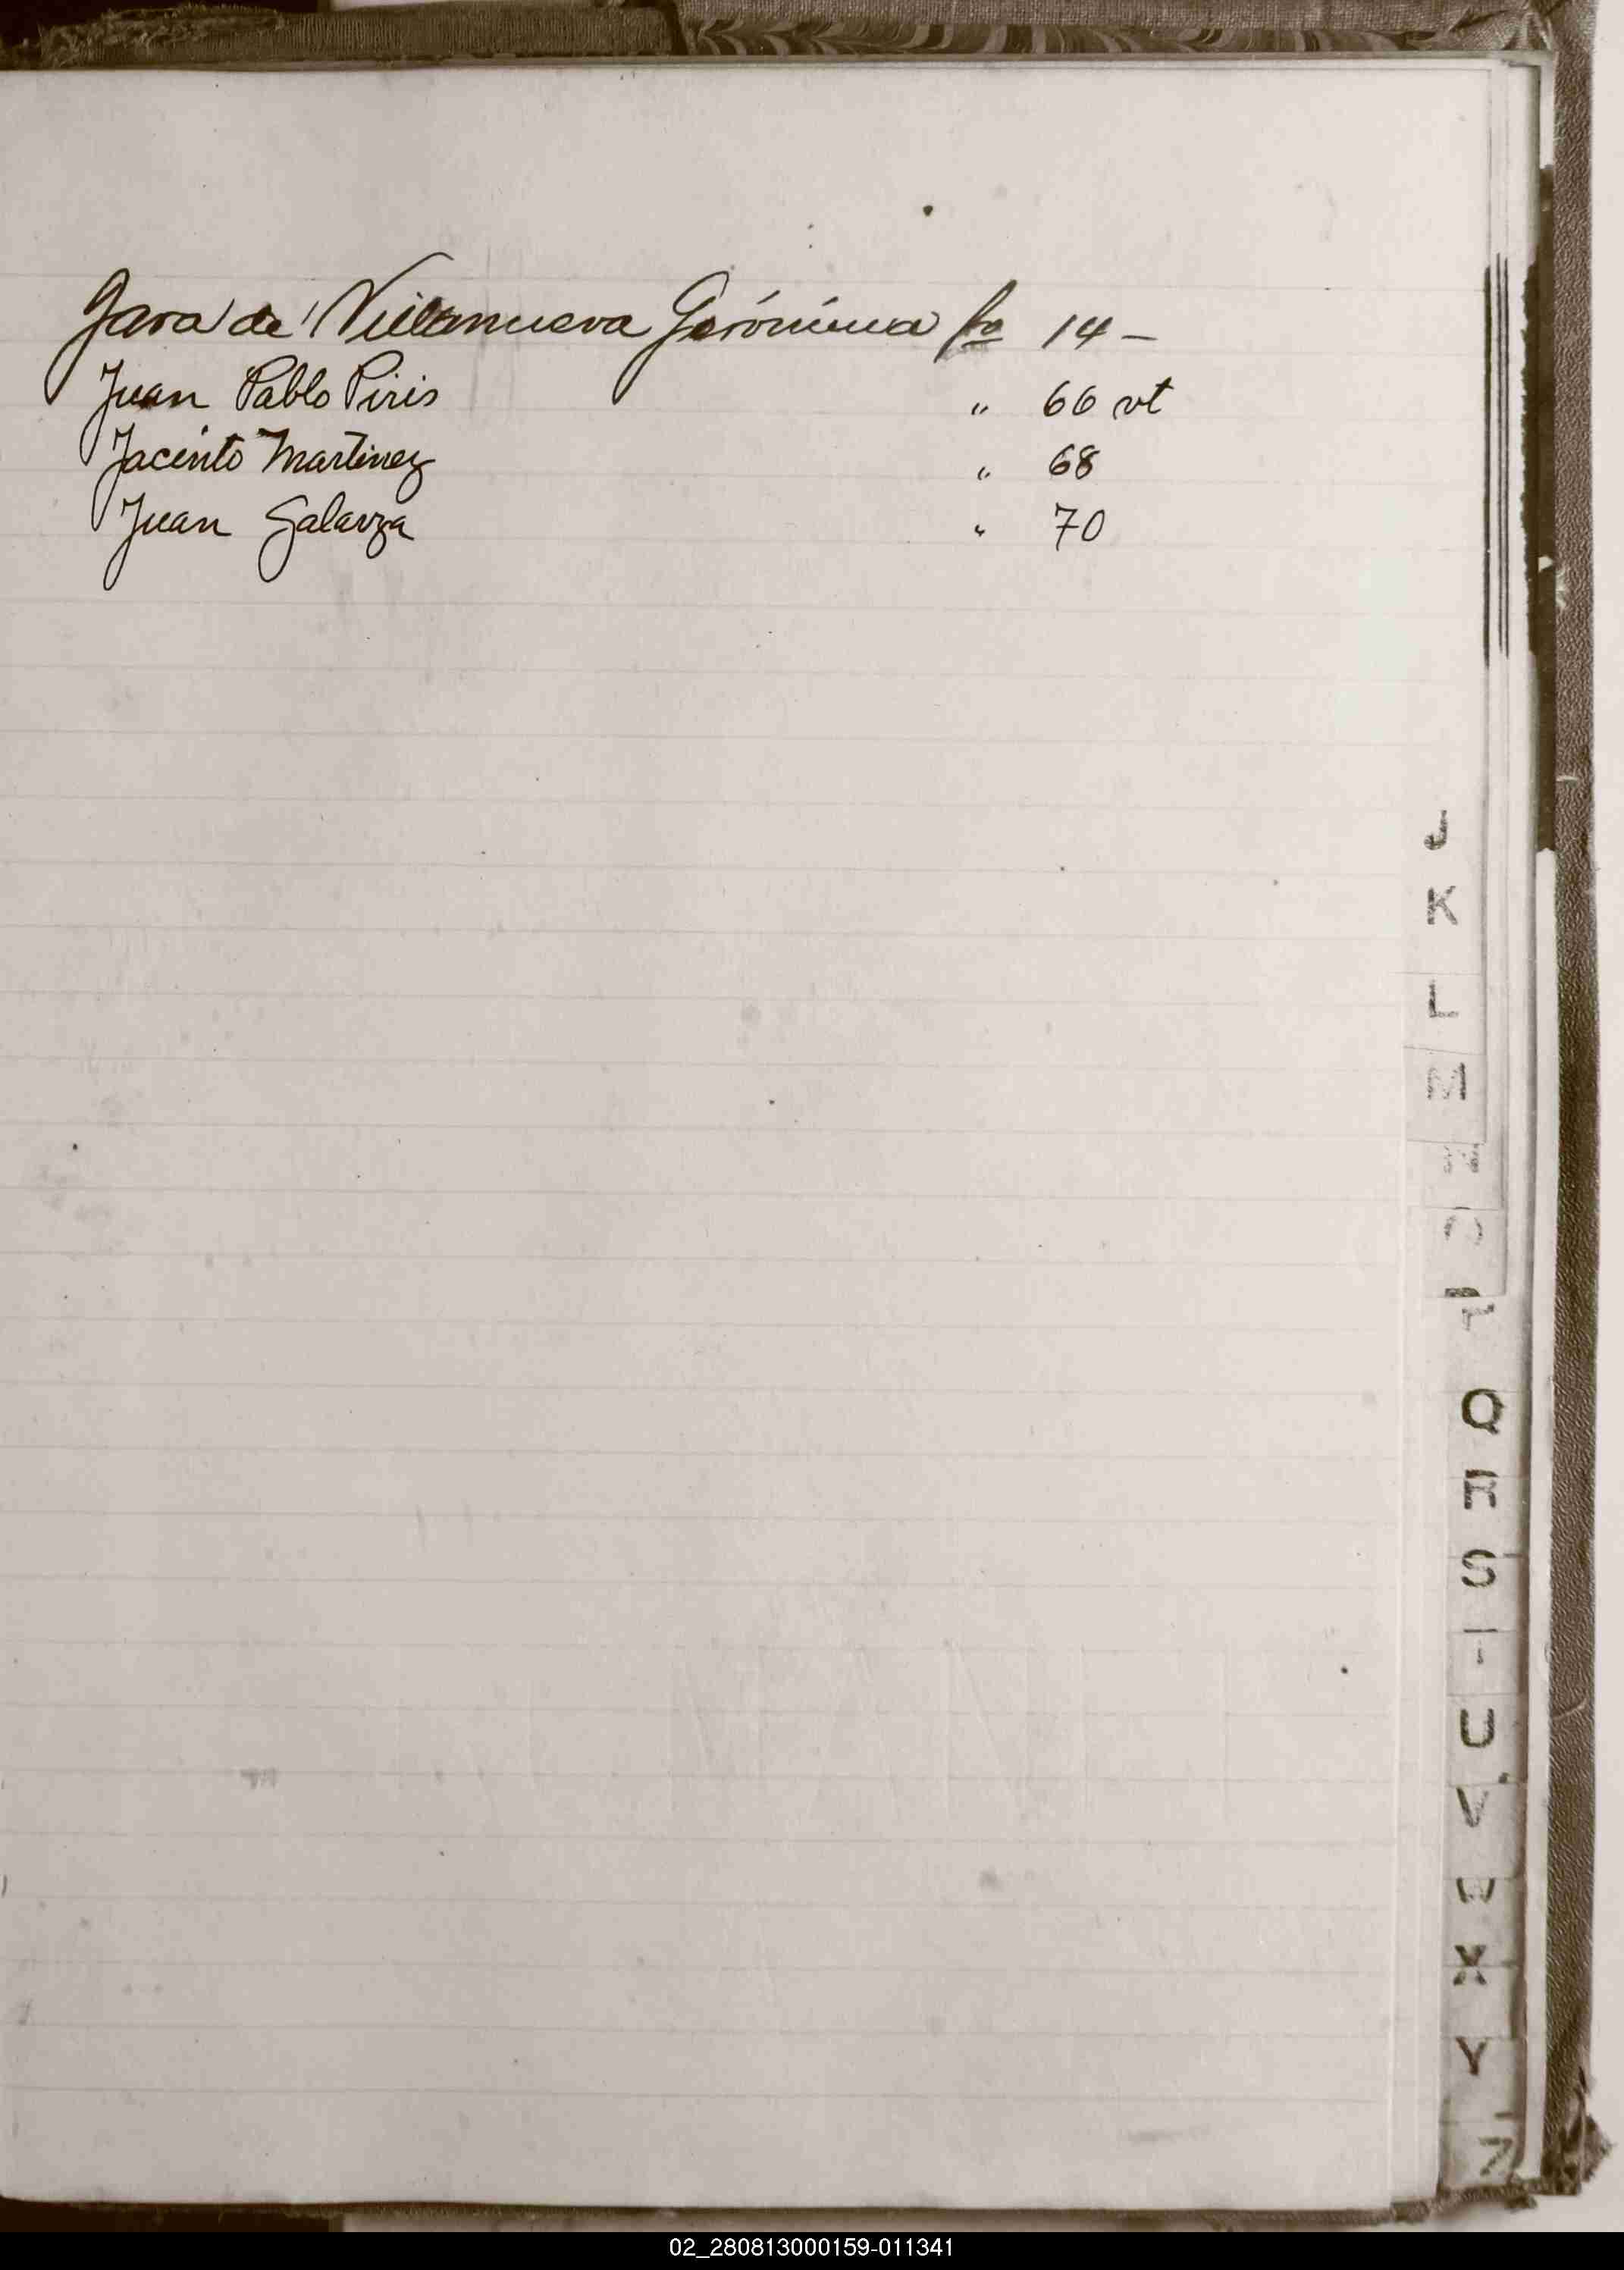 Jara de Villanueva Gerónima fo 14 —
Juan Pablo Piris " 66 vt
Jacinto Martinez " 68
Juan Galarza " 70
J
K
L
M
N
O
P
Q
R
S
T
U
V
W
X
Y
Z
02_280813000159-011341